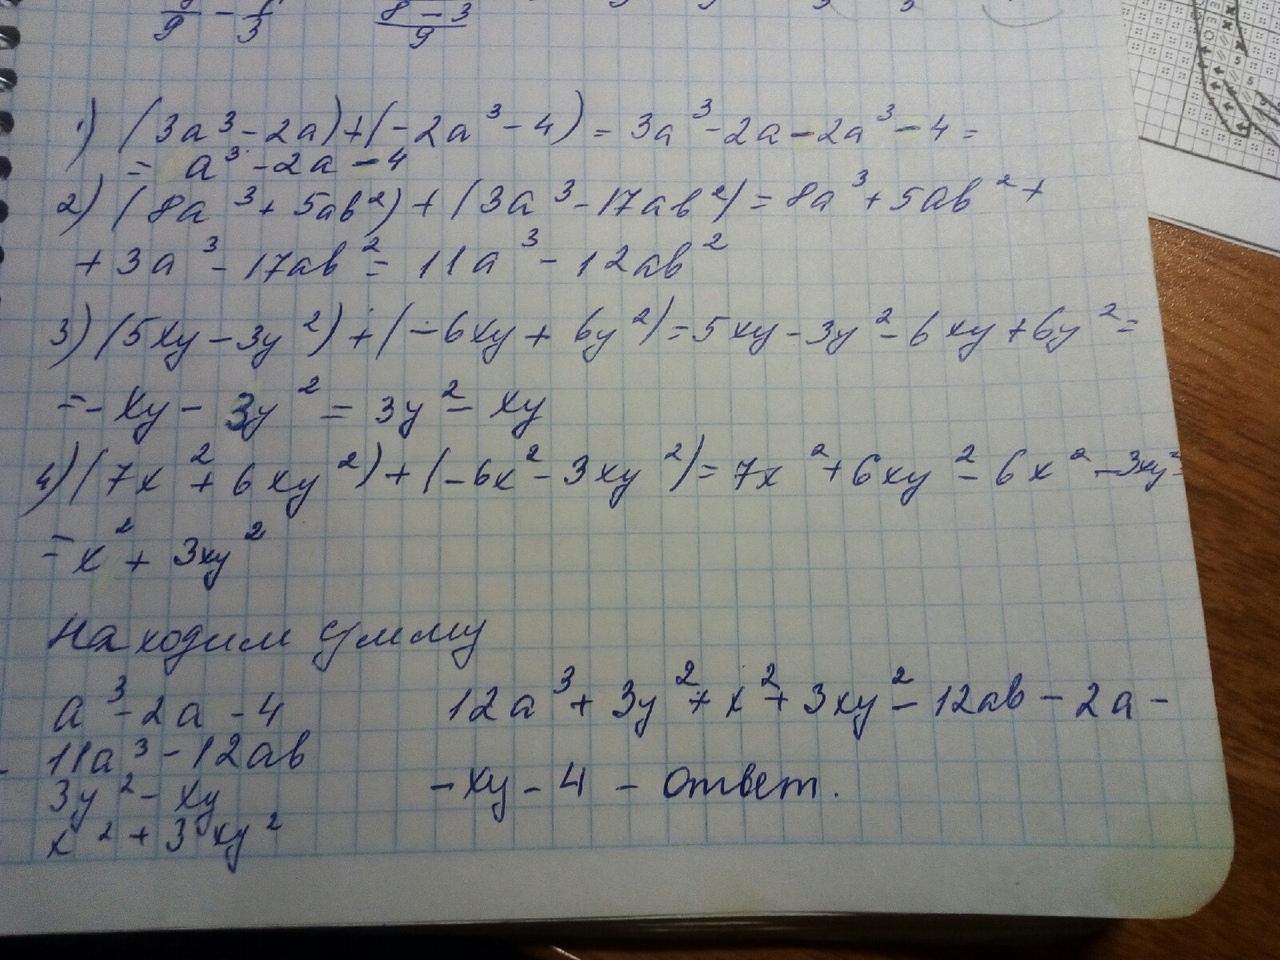 8/9 - 1/3    (8-3)/9
1) (3a³-2a)+(-2a³-4)=3a³-2a-2a³-4=
= a³-2a-4
2) (8a³+5ab²)+(3a³-17ab²)=8a³+5ab²+
+3a³-17ab²=11a³-12ab²
3) (5xy-3y²)+(-6xy+6y²)=5xy-3y²-6xy+6y²=
=-xy-3y²=3y²-xy
4) (7x²+6xy²)+(-6x²-3xy²)=7x²+6xy²-6x²-3xy²=
=x²+3xy²
Находим сумму
a³-2a-4
11a³-12ab
3y²-xy
x²+3xy²
12a³+3y²+x²+3xy²-12ab-2a-
-xy-4 - ответ.